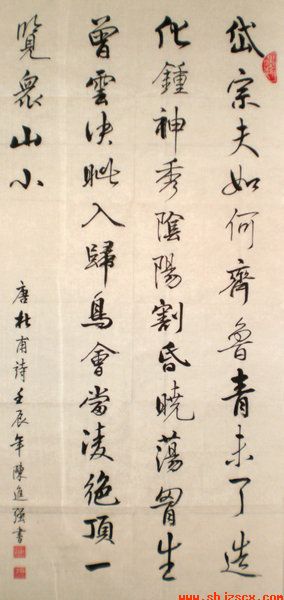 岱宗夫如何齊魯青未了造
化鍾神秀陰陽割昏曉蕩胷生
曾雲決眦入歸鳥會當凌絕頂一
覽衆山小
唐杜甫詩壬辰年陳進強書
www.shizscx.com